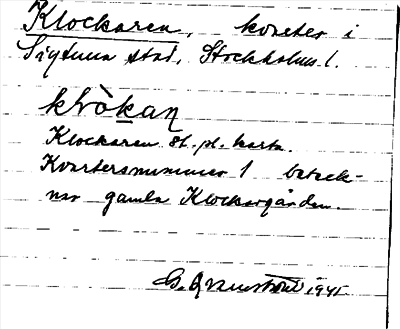 Klockaren, kvarter i
Sigtuna stad, Stockholms l.
klòkan
Klockaren st. pl. karta.
Kvartersnummer 1 beteck-
nar gamla Klockargården.
1945